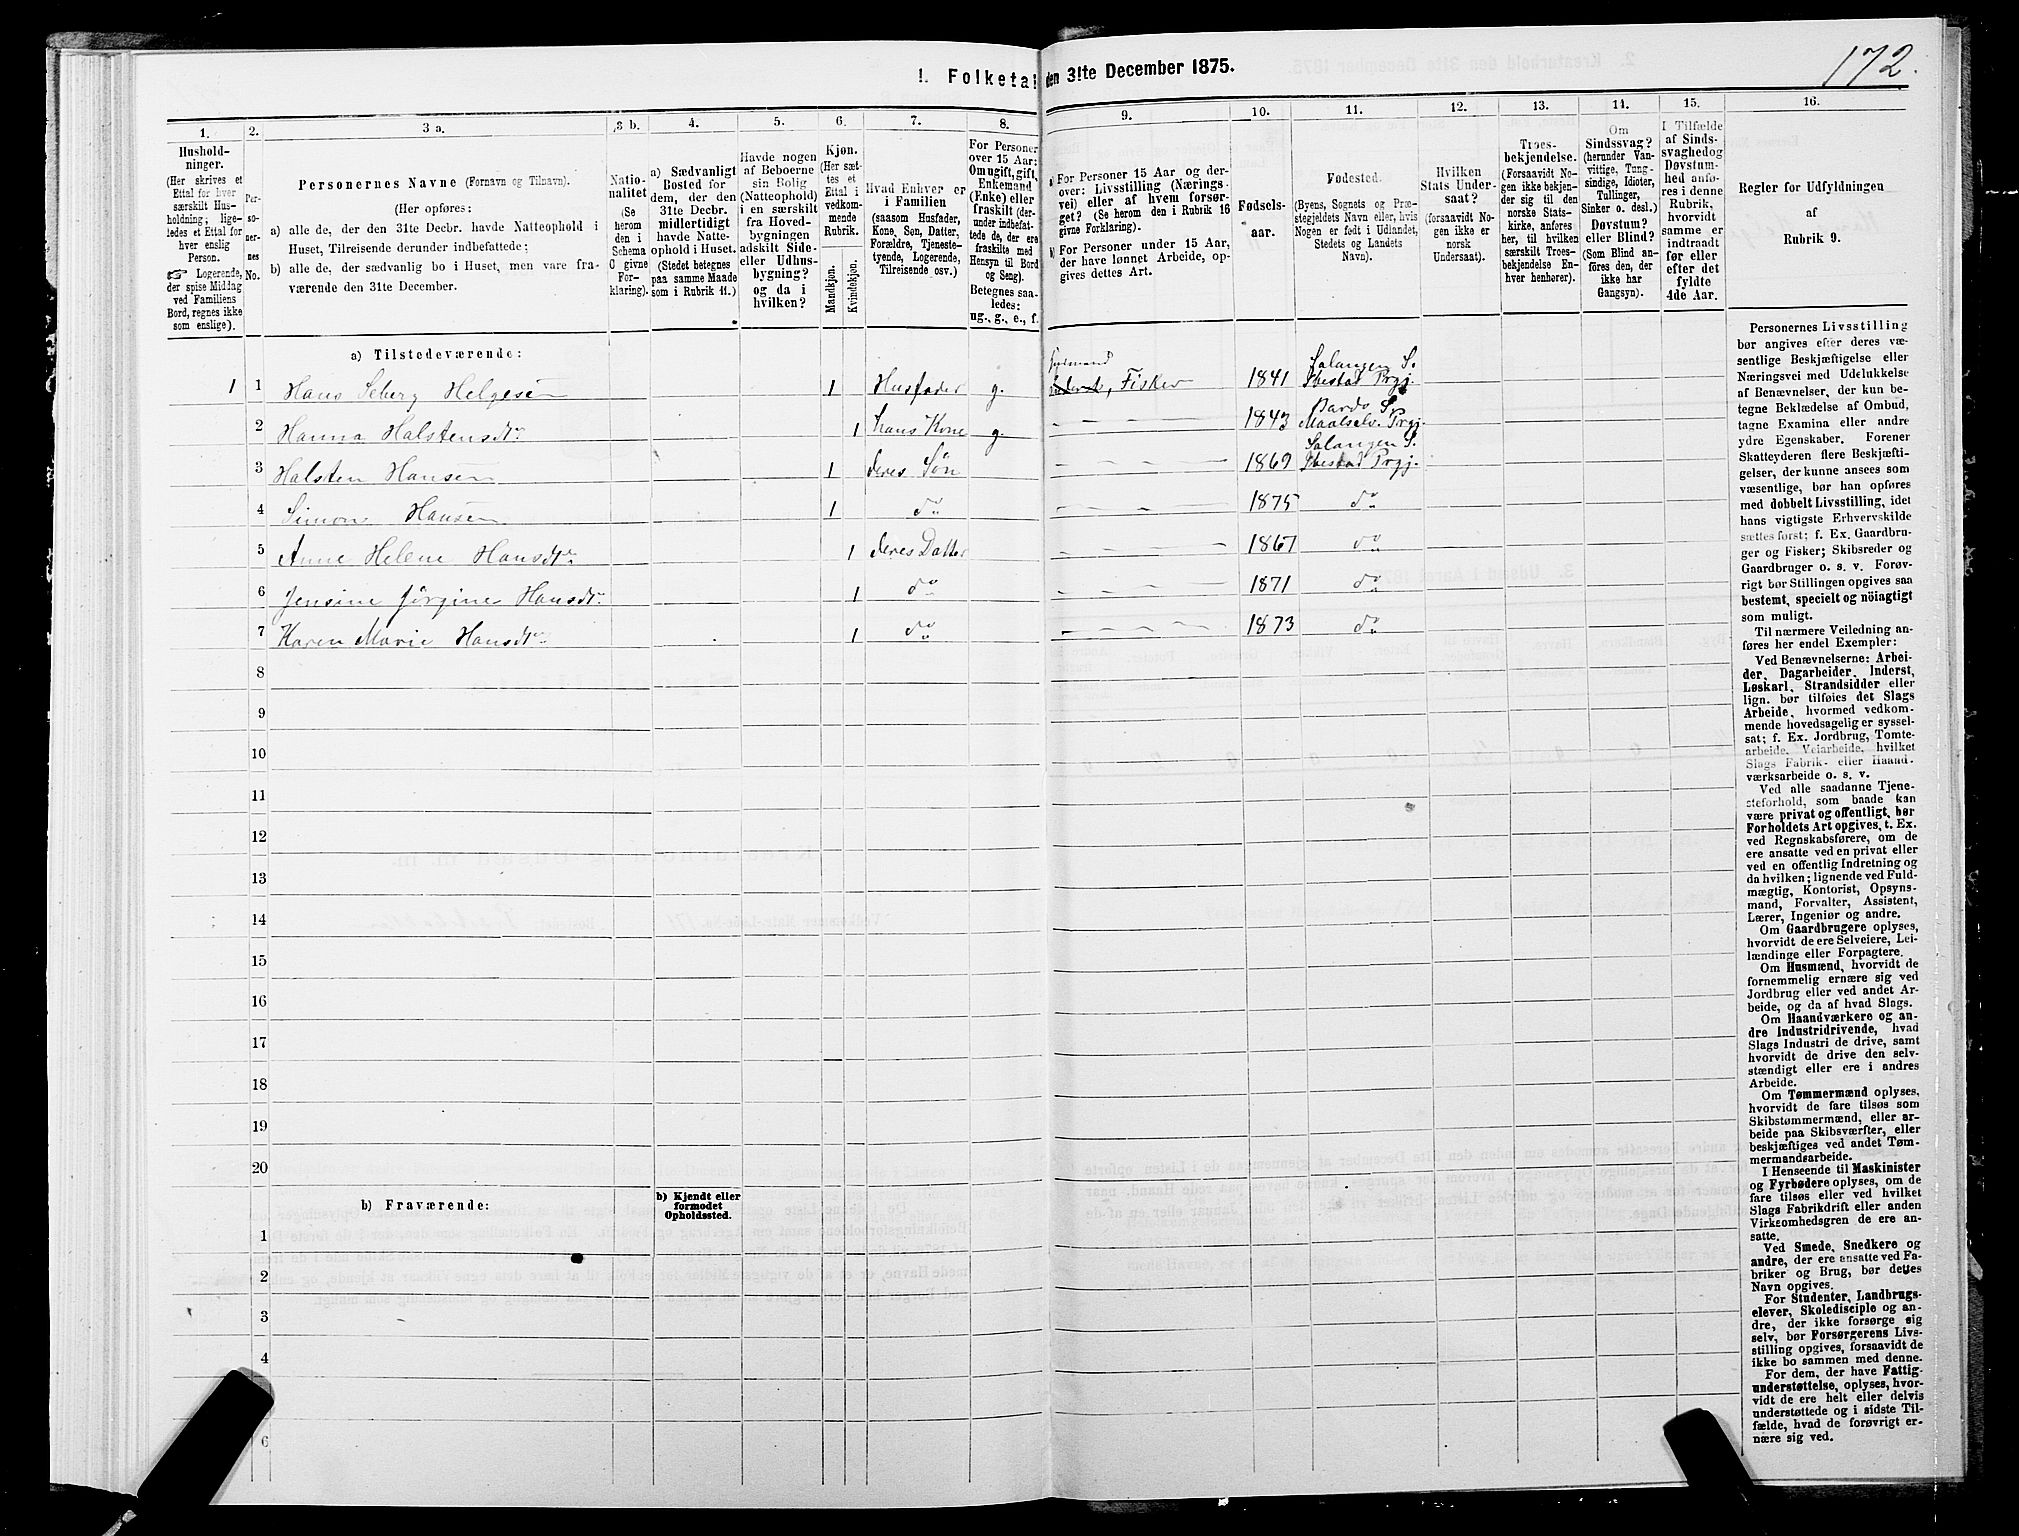 172.
I. Folketal den 31te December 1875.
1. 2. 3 a. 3 b. 4. 5. 6. 7. 8. 9. 10. 11. 12. 13. 14. 15. 16.
Hushold-
ninger.
(Her skrives et
Ettal for hver
særskilt Hus-
holdning; lige-
ledes et Ettal for
hver enslig
Person.
☞ Logerende,
der spise Middag
ved Familiens
Bord, regnes ikke
som enslige).
Per-
so-
ner-
nes
No.
Personernes Navne (Fornavn og Tilnavn).
(Her opføres:
a) alle de, der den 31te Decbr. havde Natteophold i
Huset, Tilreisende derunder indbefattede;
b) alle de, der sædvanlig bo i Huset, men vare fra-
værende den 31te December.
Natio-
nalitet
(Se
herom
den i
Schema
O givne
For-
klaring).
a) Sædvanligt
Bosted for
dem, der den
31te Decbr.
midlertidigt
havde Natte-
ophold i Huset.
(Stedet betegnes
paa samme Maade
som i Rubrik 11.)
Havde nogen
af Beboerne
sin Bolig
(Natteophold)
i en særskilt
fra Hoved-
bygningen
adskilt Side-
eller Udhus-
bygning?
og da i
hvilken?
Kjøn.
(Her sæt-
tes et
Ettal i
vedkom-
mende
Rubrik.
Mandkjøn.
Kvindekjøn.
Hvad Enhver er
i Familien
(saasom Husfader,
Kone, Søn, Datter,
Forældre, Tjeneste-
tyende, Logerende,
Tilreisende osv.)
For Personer
over 15 Aar:
Om ugift, gift,
Enkemand
(Enke) eller
fraskilt (der-
under indbefat-
tede de, der ere
fraskilte med
Hensyn til Bord
og Seng).
Betegnes saa-
ledes:
ug., g., e., f.
a) For Personer 15 Aar og der-
over: Livsstilling (Nærings-
vei) eller af hvem forsør-
get? (Se herom den i Rubrik 16
givne Forklaring).
b) For Personer under 15 Aar,
der have lønnet Arbeide, op-
gives dettes Art.
Fødsels-
aar.
Fødested.
(Byens, Sognets og Præ-
stegjeldets Navn eller, hvis
Nogen er født i Udlandet,
Stedets og Landets
Navn).
Hvilken
Stats Under-
saat?
(forsaavidt No-
gen ikke er
norsk
Undersaat).
Troes-
bekjendelse.
(Forsaavidt No-
gen ikke bekjen-
der sig til den
norske Stats-
kirke, anføres
her, til hvilken
særskilt Troes-
bekjendelse En-
hver henhører).
Om
Sindssvag?
(herunder Van-
vittige, Tung-
sindige, Idioter,
Tullinger,
Sinker o. desl.)
Døvstum?
eller Blind?
(Som Blind an-
føres den, der
ikke har
Gangsyn).
I Tilfælde
af Sinds-
svaghed og
Døvstum-
hed anfø-
res i denne
Rubrik,
hvorvidt
samme er
indtraadt
før eller
efter det
fyldte
4de Aar.
Regler for Udfyldningen
af
Rubrik 9.
a) Tilstedeværende:
1 1 Hans Seberg Helgesen 1 Husfader g. Fisker 1841 Salangen S. Ibestad Prgj.
2 Hanna Halstensdtr 1 hans Kone g. 1843 Bardo S. Maalselv. Prgj.
3 Halsten Hansen 1 deres Søn 1869 Salangen S. Ibestad Prgj.
4 Simon Hansen 1 do 1875 do
5 Anne Helene Hansdtr 1 deres Datter 1867 do
6 Jensine Jørgine Hansdtr 1 do 1871 do
7 Karen Marie Hansdtr 1 do 1873 do
8
9
10
11
12
13
14
15
16
17
18
19
20
b) Fraværende:
b) Kjendt eller
formodet
Opholdssted.
1
2
3
4
6
Personernes Livsstilling
bør angives efter deres væ-
sentlige Beskjæftigelse eller
Næringsvei med Udelukkelse
af Benævnelser, der kun be-
tegne Beklædelse af Ombud,
tagne Examina eller andre
ydre Egenskaber. Forener
Skatteyderen flere Beskjæfti-
gelser, der kunne ansees som
væsentlige, bør han opføres
med dobbelt Livsstilling, idet
hans vigtigste Erhvervskilde
sættes først; f. Ex. Gaardbru-
ger og Fisker; Skibsreder og
Gaardbruger o. s. v. Forøv-
rigt bør Stillingen opgives saa
bestemt, specielt og nöiagtigt
som muligt.
Til nærmere Veiledning an-
føres her endel Exempler:
Ved Benævnelserne: Arbei-
der, Dagarbeider, Inderst,
Løskarl, Strandsidder eller
lign. bør tilføies det Slags
Arbeide, hvormed vedkom-
mende hovedsagelig er syssel-
sat; f. Ex. Jordbrug, Tomte-
arbeide, Veiarbeide, hvilket
Slags Fabrik- eller Haand-
værksarbeide o. s. v.
Ved alle saadanne Tjene-
steforhold, som baade kan
være privat og offentligt, bør
Forholdets Art opgives, t. Ex.
ved Regnskabsførere, om de
ere ansatte ved en privat eller
ved en offentlig Indretning og
da hvilken; lignende ved Fuld-
mægtig, Kontorist, Opsyns-
mand, Forvalter, Assistent,
Lærer, Ingeniør og andre.
Om Gaardbrugere oplyses,
hvorvidt de ere Selveiere, Lei-
lændinge eller Forpagtere.
Om Husmænd, hvorvidt de
fornemmelig ernære sig ved
Jordbrug eller ved andet Ar-
beide, og da af hvad Slags.
Om Haandværkere og an-
dre Industridrivende, hvad
Slags Industri de drive, samt
hvorvidt de drive den selv-
stændigt eller ere i andres
Arbeide.
Om Tømmermænd oplyses,
hvorvidt de fare tilsøs som
Skibstømmermænd, eller ar-
beide paa Skibsværfter, eller
beskjæftiges ved andet Tøm-
mermandsarbeide.
I Henseende til Maskinister
og Fyrbødere oplyses, om de
fare tilsøs eller ved hvilket
Slags Fabrikdrift eller anden
Virksomhedsgren de ere an-
satte.
Ved Smede, Snedkere og
andre, der ere ansatte ved Fa-
briker og Brug, bør dettes
Navn opgives.
For Studenter, Landbrugs-
elever, Skoledisciple og an-
dre, der ikke forsørge sig
selv, bør Forsørgerens Livs-
stilling opgives, forsaavidt de
ikke bo sammen med denne.
For dem, der have Fattig-
understøttelse, oplyses, hvor-
vidt de ere helt eller delvis
understøttede og i sidste Til-
fælde, hvad de forøvrigt er-
nære sig ved.